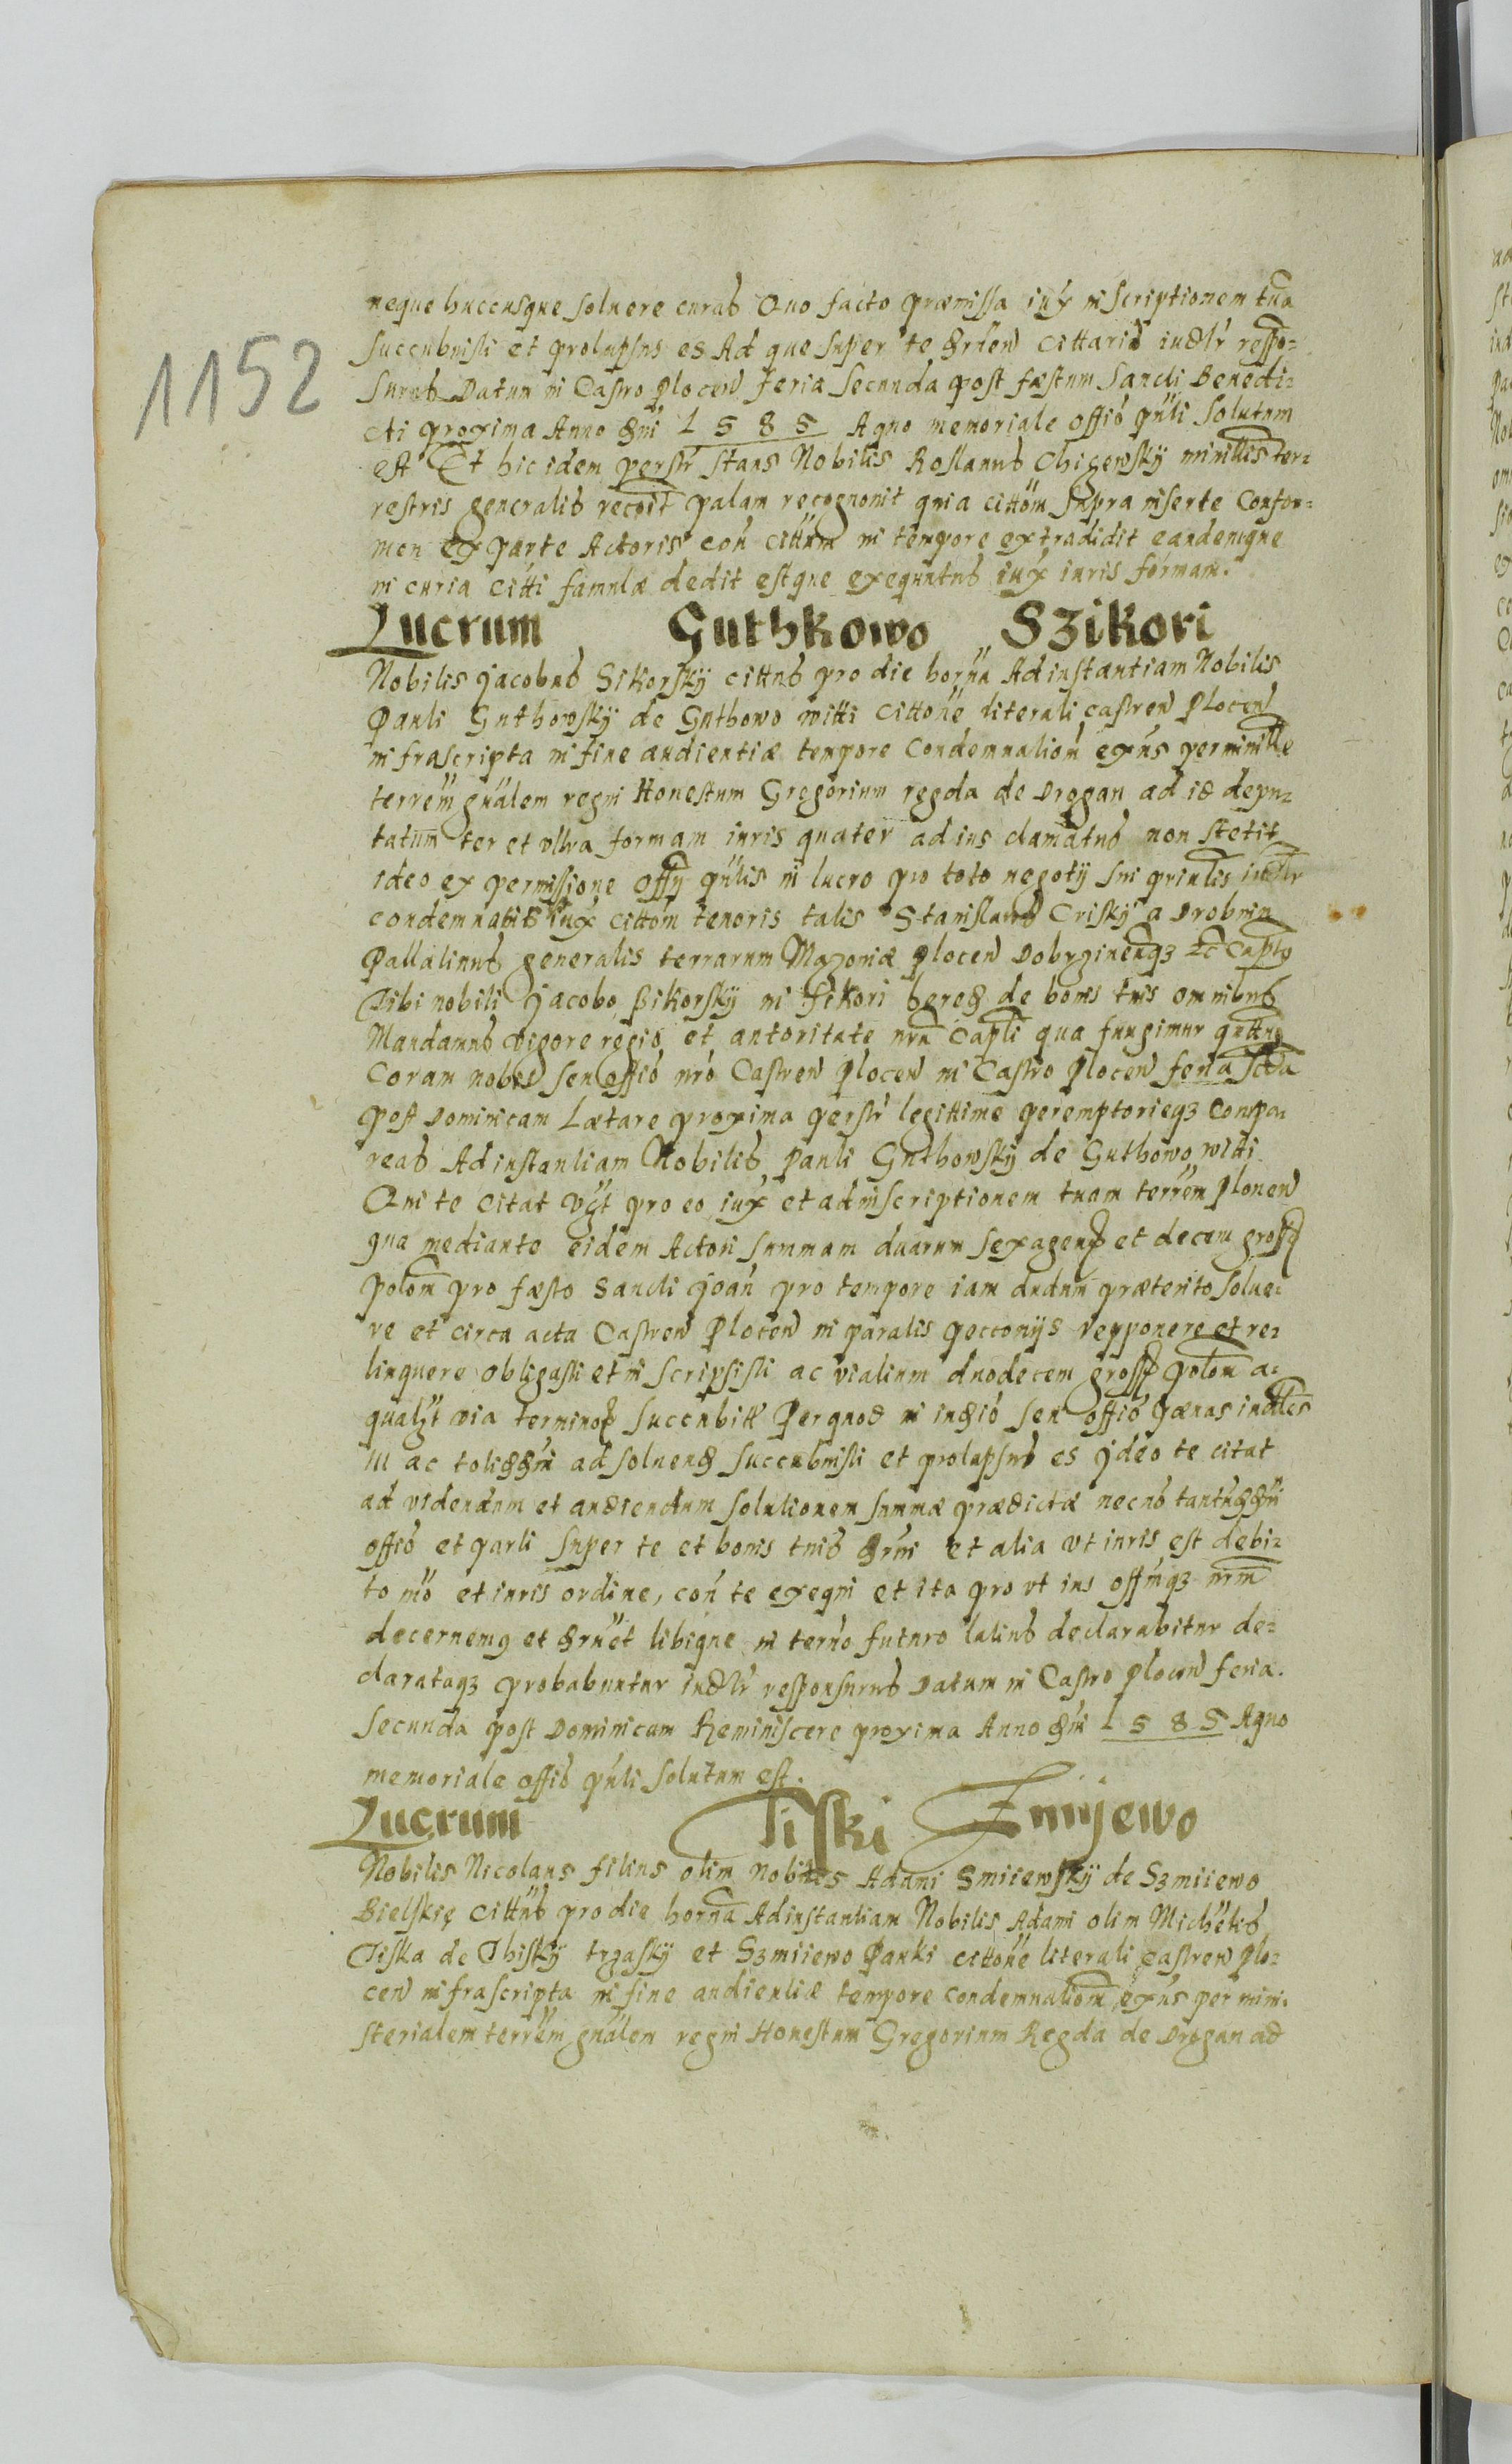 1152
neque huccusque soluere curas Quo facto præmissa iux inscriptionem tua
succubuisti et prolapsus es Ad que super te cittaris iudlr respo=
surus Datum in Castro Plocen feria secunda post fæstum Sancti Benedi=
cti proxima Anno dni 1585 Aquo memoriale offio pnli solutum
est Et hic idem perstr stans Nobilis Roslanus Chigensky ministlis ter=
restris generalis recoit palam recognouit quia cittom supra inserte Confor=
men ex parte Actoris con cittum in tempore extradidit eandemque
in curia citti famulæ dedit estque exequutus iux iuris formam.
Lucrum Guthkowo Szikori
Nobilis Jacobus Sikorsky cittus pro die horna Ad instantiam Nobilis
Pauli Guthowsky de Guthowo witti cittone literali castren Plocen
infrascripta in fine audientiæ tempore Condemnation exns per ministle
terrem gnalem regni Honestum Gregorium regda de Drogan ad id depu=
tatum ter et vltra formam iuris quater ad ius clamatus non stetit
ideo ex permissione offy pnlis in lucro pro toto negoty sui prinlis iudlr
condemnatus iux cittom tenoris talis Stanislaus Crisky a Drobnin
Pallatinus generalis terrarum Mazoniæ Plocen Dobrzinenqz &c Captq
Tibi nobili Jacobo Sikorsky in sikori hered de bonis tuis omnibus
Mandamus vigore regio et autoritate nra Capli qua fungimur quttus
Coram nobis seu offio nro Castren Plocen in Castro Plocen feria scda
post Dominicam Lætare proxima perstr legittime peremptorieqz Compa=
reas Ad instantiam Nobilis Pauli Guthowsky de Guthowo witti
Qui te citat pro eo iux et ad inscriptionem tuam terren Plonen
qua mediante eidem Actori summam duarum sexagen et decem gross
polon pro fæsto Sancti Joan pro tempore iam dudum præterito solue=
re et circa acta Castren Plocen in paratis peccunys repponere et re=
linquere obligasti et inscripsisti ac vialium duodecem gross polon a=
qualzt via terminor succubitt Per quod in indio seu offio pænas inales
III ac toliddm ad soluend succubuisti et prolapsus es Ideo te citat
ad videndum et audiendum solutionem summæ prædictæ necno tantuddm
offio et parti super te et bonis tuis et alia vt iuris est debi=
to mo et iuris ordine, con te exequi et ita pro vt ius offmqz nrm
decernemq et libique in terno futuro latius declarabitur de=
clarataqz probabuntur iudlr responsurus Datum in Castro Plocen feria.
Secunda post Dominicam Reminiscere proxima Anno dni 1585 Aquo
memoriale offio pnli solutum est.
Lucrum Tiski Zmijewo
Nobilis Nicolaus filius olim nobilis Adami Smiiewsky de Szmiiewo
Bielskię cittus pro die horna Ad instantiam Nobilis Adami olim Michælis
Tiska de Thisky trzasky et Szmiiewo Panki cittone literali castren Plo=
cen infrascripta in fine audientiæ tempore condemnation exns per mini=
sterialem terrem gnalem regni Honestum Gregorium Regda de Drogan ad